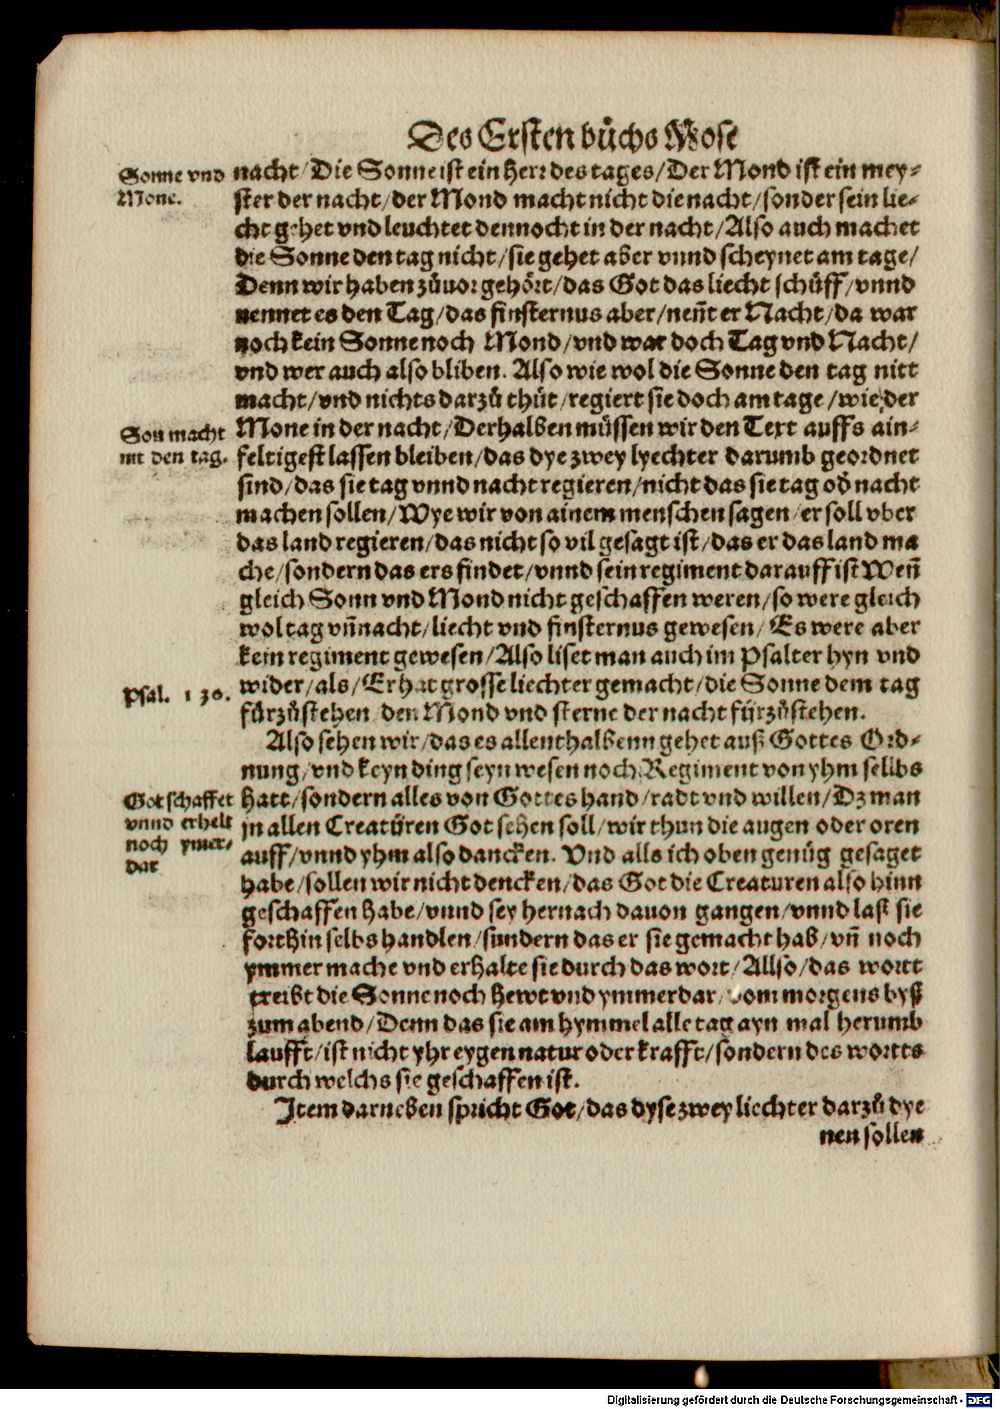 Des Ersten bůchs Mose
Sonne vnd
Mone.
nacht/Die Sonne ist ein Herr des tages/Der Mond ist ein mey-
ster der nacht/der Mond macht nicht die nacht/sonder sein lie-
cht gehet vnd leuchtet dennocht in der nacht/Also auch machet
die Sonne den tag nicht/sie gehet aber vnnd scheynet am tage/
Denn wir haben zůuor gehört/das Got das liecht schůff/vnnd
nennet es den Tag/das finsternus aber/neñt er Nacht/da war
noch kein Sonne noch Mond/vnd war doch Tag vnd Nacht/
vnd wer auch also bliben. Also wie wol die Sonne den tag nitt
macht/vnd nichts darzů thůt/regiert sie doch am tage/wie der
Son macht
nit den tag.
Mone in der nacht/Derhalben müssen wir den Text auffs ain-
feltigest lassen bleiben/das dye zwey lyechter darumb geordnet
sind/das sie tag vnnd nacht regieren/nicht das sie tag od̕ nacht
machen sollen/Wye wir von ainem menschen sagen/er soll vber
das land regieren/das nicht so vil gesagt ist/das er das land ma
che/sondern das ers findet/vnnd sein regiment darauff ist Weñ
gleich Sonn vnd Mond nicht geschaffen weren/so were gleich
wol tag vñ nacht/liecht vnd finsternus gewesen/Es were aber
kein regiment gewesen/Also liset man auch im Psalter hyn vnd
Psal. 136.
wider/als/Er hat grosse liechter gemacht/die Sonne dem tag
fürzůstehen den Mond vnd sterne der nacht fürzůstehen.
Also sehen wir/das es allenthalbenn gehet auß Gottes Ord-
nung/vnd keyn ding seyn wesen noch Regiment von yhm sellbs
Got schaffet
vnnd erhelt
noch ymer-
dar
hatt/sondern alles von Gottes hand/radt vnd willen/Dz man
jn allen Creatüren Got sehen soll/wir thun die augen oder oren
auff/vnnd yhm also dancken. Vnd alls ich oben genůg gesaget
habe/sollen wir nicht dencken/das Got die Creaturen also hinn
geschaffen habe/vnnd sey hernach dauon gangen/vnnd last sie
forthin selbs handlen/sundern das er sie gemacht hab/vñ noch
ymmer mache vnd erhalte sie durch das wort/Allso/das wortt
treibt die Sonne noch hewt vnd ymmerdar/vom morgens byß
zum abend/Denn das sie am hymmel alle tag ayn mal herumb
laufft/ist nicht yhr eygen natur oder krafft/sondern des wortts
durch welchs sie geschaffen ist.
Item darneben spricht Got/das dyse zwey liechter darzů dye
nen sollen
Digitalisierung gefördert durch die Deutsche Forschungsgemeinschaft - DFG